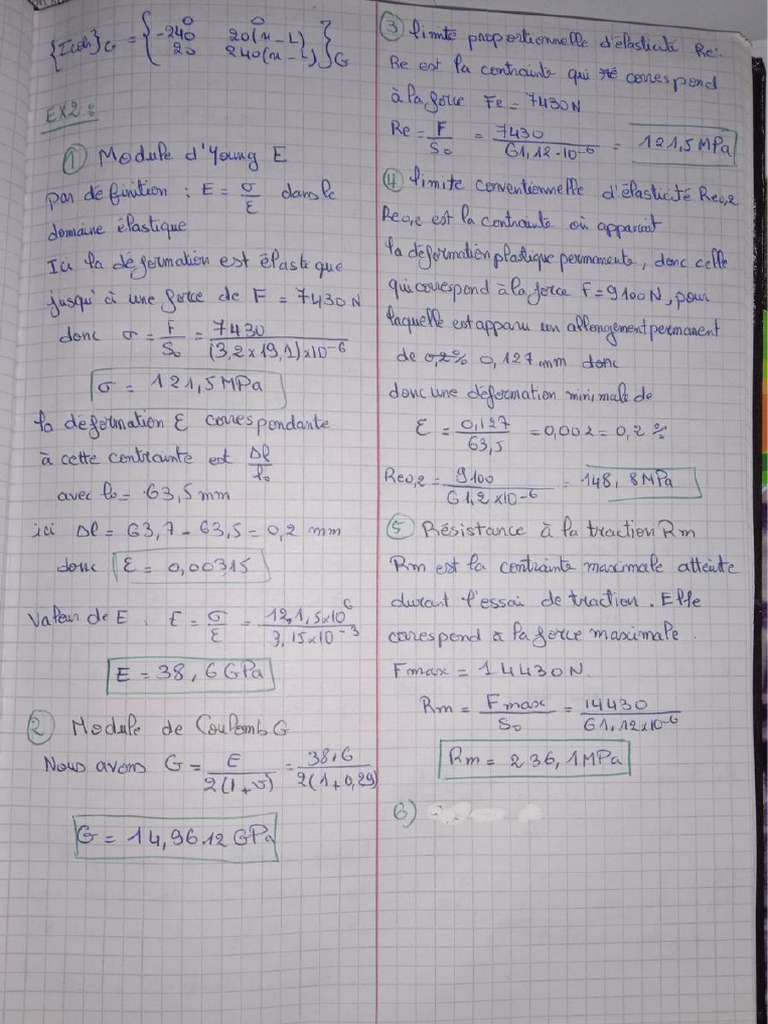 {Tcoh}G = { -240 0
20 20(x-L)
0 240(x-L) }G
EX2 :
① Module d'Young E
par définition : E = σ/ε dans le
domaine élastique
Ici la déformation est élastique
jusqu'à une force de F = 7430 N
donc σ = F/S₀ = 7430/((3,2x19,1)x10⁻⁶
σ = 121,5 MPa
la déformation ε correspondante
à cette contrainte est Δl/l₀
avec l₀ = 63,5 mm
ici Δl = 63,7 - 63,5 = 0,2 mm
donc ε = 0,00315
Valeur de E : E = σ/ε = 121,5x10⁶/3,15x10⁻³
E = 38,6 GPa
② Module de Coulomb G
Nous avons G = E/2(1+ν) = 38,6/2(1+0,29)
G = 14,9612 GPa
③ limite proportionnelle d'élasticité Re:
Re est la contrainte qui correspond
à la force Fe = 7430 N
Re = F/S₀ = 7430/61,12.10⁻⁶ = 121,5 MPa
④ limite conventionnelle d'élasticité Re0,2
Re0,2 est la contrainte où apparait
la déformation plastique permanente, donc celle
qui correspond à la force F = 9100 N, pour
laquelle est apparu un allongement permanent
de 0,127 mm donc
donc une déformation minimale de
ε = 0,127/63,5 = 0,002 = 0,2 %
Re0,2 = 9100/61,2x10⁻⁶ = 148,8 MPa
⑤ Résistance à la traction Rm
Rm est la contrainte maximale atteinte
durant l'essai de traction. Elle
corespond à la force maximale
Fmax = 14430 N.
Rm = Fmax/S₀ = 14430/61,12x10⁻⁶
Rm = 236,1 MPa
6)